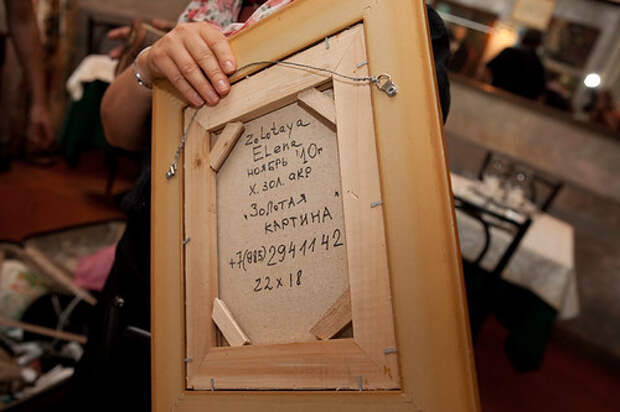 Zolotaya
Elena
ноябрь '10г
х. зол. акр
"Золотая
картина"
+7(985)2941142
22х18